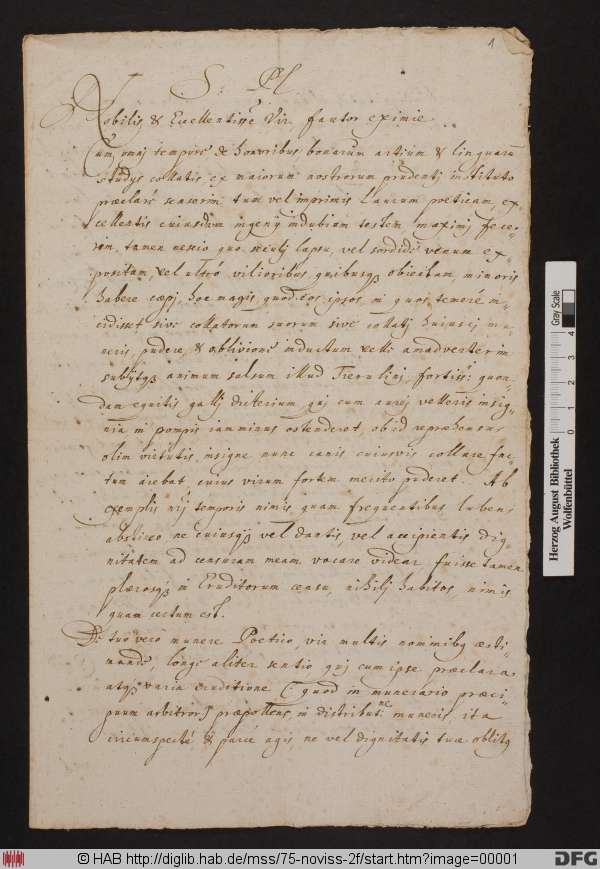 1
S: Pl
Nobilis & Excellentisse Vir fautor eximie
Cum omnj tempore de honoribus bonarum artium & linguarū
studys collatis ex maiorum nostrorum prudentj instituto
præclarè senserim tum vel imprimis Lauream poeticam, ex
cellentis cuiusdam ingenÿ indubiam testem maximj fece-
rim, tamen nescio quo seculj lapsu, vel sordidè venum ex
positam, vel ultrò vilioribus quibusqȝ obiectam, minoris
habere cæpj, hoc magis quod eos ipsos, in quos temerè in
cidisset sive collatorum suorum sive collatj huiuscj mu
neris, pudere, & oblivione inductum velle animadverterim
subÿtqȝ animum salsum illud fortiss: quon
dam equitis gallj dicterium, qui cum aurej velleris insig
nia in pompis iam minus ostenderet, ob id repræhensus
olim virtutis insigne nunc canis cuiusvis collare fac
tum aiebat cuius virum fortem merito puderet. Ab
exemplis nrj temporis nimis quam frequentibus lubens
abstineo ne cuiusqȝ vel dantis, vel accipientis dig-
nitatem ad censuram meam vocare videar, fuisse tamen
plærosqȝ in Eruditorum censu, nihilj habitos, nimis
quam certum est.
De tuo vero munere Poetico, vir multis nominibȝ æsti
mande, longè aliter sentio quj cum ipse præclara
atqȝ varia eruditione (: quod in munerario præci
puum arbitror:) præpollens, in distributne muneris, ita
circumspectè & parcè agis, ne vel dignitatis tuæ oblitȝ
Herzog August Bibliothek
Wolfenbüttel
Gray Scale
0 1 2 3 4
© HAB http://diglib.hab.de/mss/75-noviss-2f/start.htm?image=00001
DFG